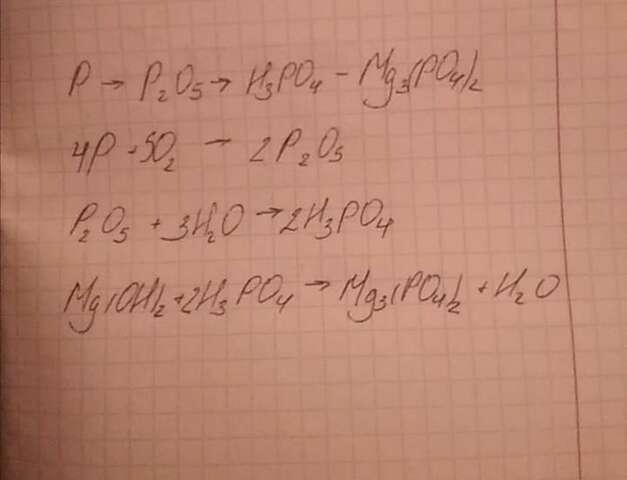 P → P₂O₅ → H₃PO₄ - Mg₃(PO₄)₂
4P + 5O₂ → 2P₂O₅
P₂O₅ + 3H₂O → 2H₃PO₄
Mg(OH)₂ + 2H₃PO₄ → Mg₃(PO₄)₂ + H₂O